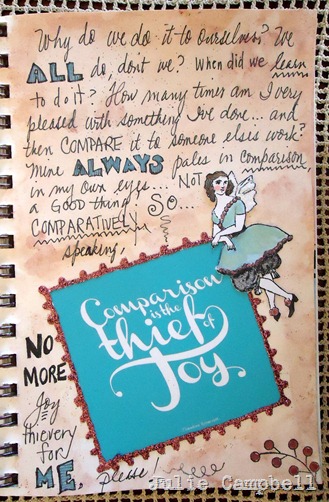 Why do we do it to ourselves? We
ALL do, don't we? When did we learn
to do it? How many times am I very
pleased with something I've done... and
then COMPARE it to someone else's work?
Mine ALWAYS pales in comparison,
in my own eyes... NOT
a GOOD thing
SO...
COMPARATIVELY
speaking,
Comparison
is the
thief of
Joy
NO
MORE
Joy
thievery
for
ME, please!
Julie Campbell